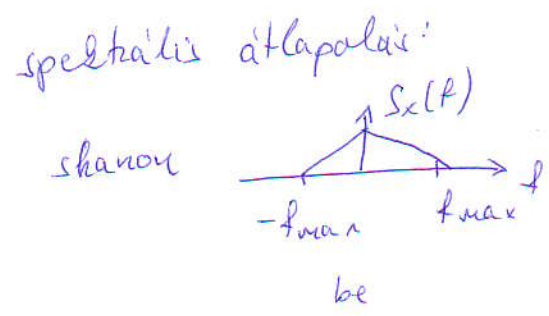 spektrális átlapolás:
Sx(f)
skanon
f
-fmax
fmax
be